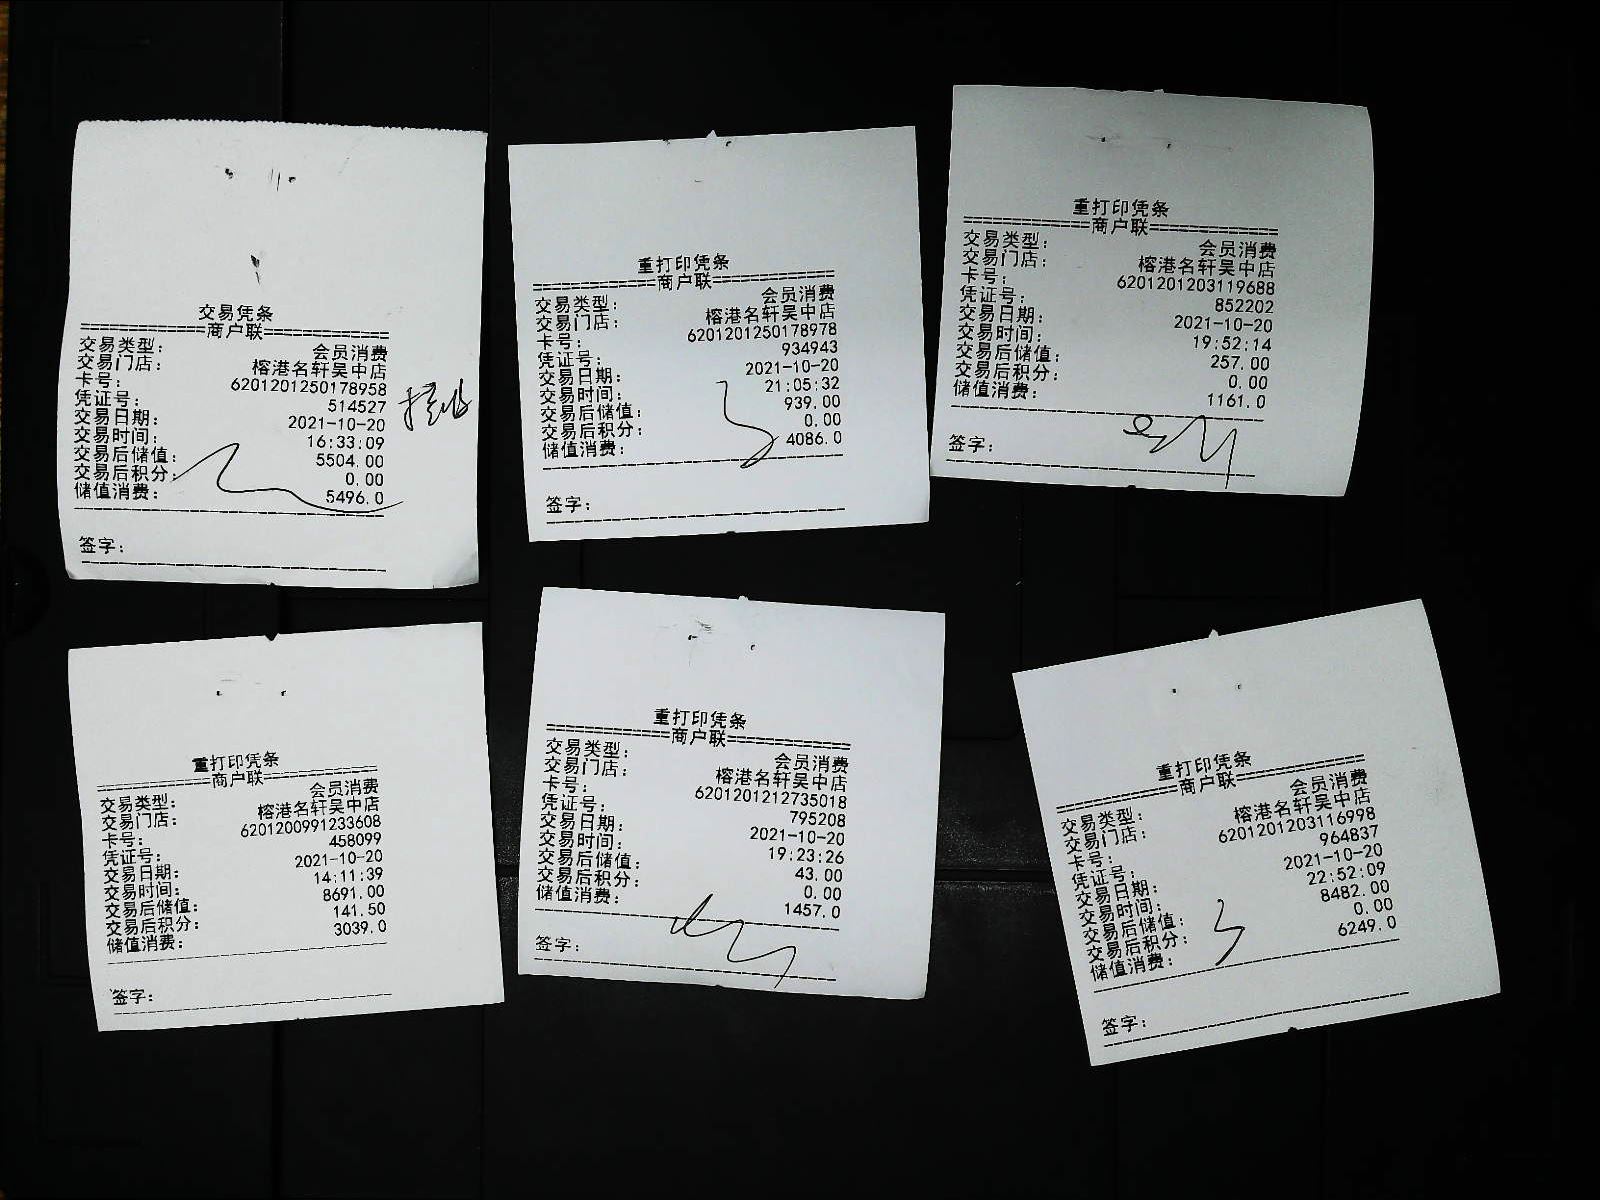 交易凭条
============商户联============
交易类型： 会员消费
交易门店： 榕港名轩吴中店
卡号： 6201201250178958
凭证号： 514527
交易日期： 2021-10-20
交易时间： 16:33:09
交易后储值： 5504.00
交易后积分： 0.00
储值消费： 5496.0
签字：
重打印凭条
============商户联============
交易类型： 会员消费
交易门店： 榕港名轩吴中店
卡号： 6201201250178978
凭证号： 934943
交易日期： 2021-10-20
交易时间： 21:05:32
交易后储值： 939.00
交易后积分： 0.00
储值消费： 4086.0
签字：
重打印凭条
============商户联============
交易类型： 会员消费
交易门店： 榕港名轩吴中店
卡号： 6201201203119688
凭证号： 852202
交易日期： 2021-10-20
交易时间： 19:52:14
交易后储值： 257.00
交易后积分： 0.00
储值消费： 1161.0
签字：
重打印凭条
============商户联============
交易类型： 会员消费
交易门店： 榕港名轩吴中店
卡号： 6201200991233608
凭证号： 458099
交易日期： 2021-10-20
交易时间： 14:11:39
交易后储值： 8691.00
交易后积分： 141.50
储值消费： 3039.0
签字：
重打印凭条
============商户联============
交易类型： 会员消费
交易门店： 榕港名轩吴中店
卡号： 6201201212735018
凭证号： 795208
交易日期： 2021-10-20
交易时间： 19:23:26
交易后储值： 43.00
交易后积分： 0.00
储值消费： 1457.0
签字：
重打印凭条
============商户联============
交易类型： 会员消费
交易门店： 榕港名轩吴中店
卡号： 6201201203116998
凭证号： 964837
交易日期： 2021-10-20
交易时间： 22:52:09
交易后储值： 8482.00
交易后积分： 0.00
储值消费： 6249.0
签字：